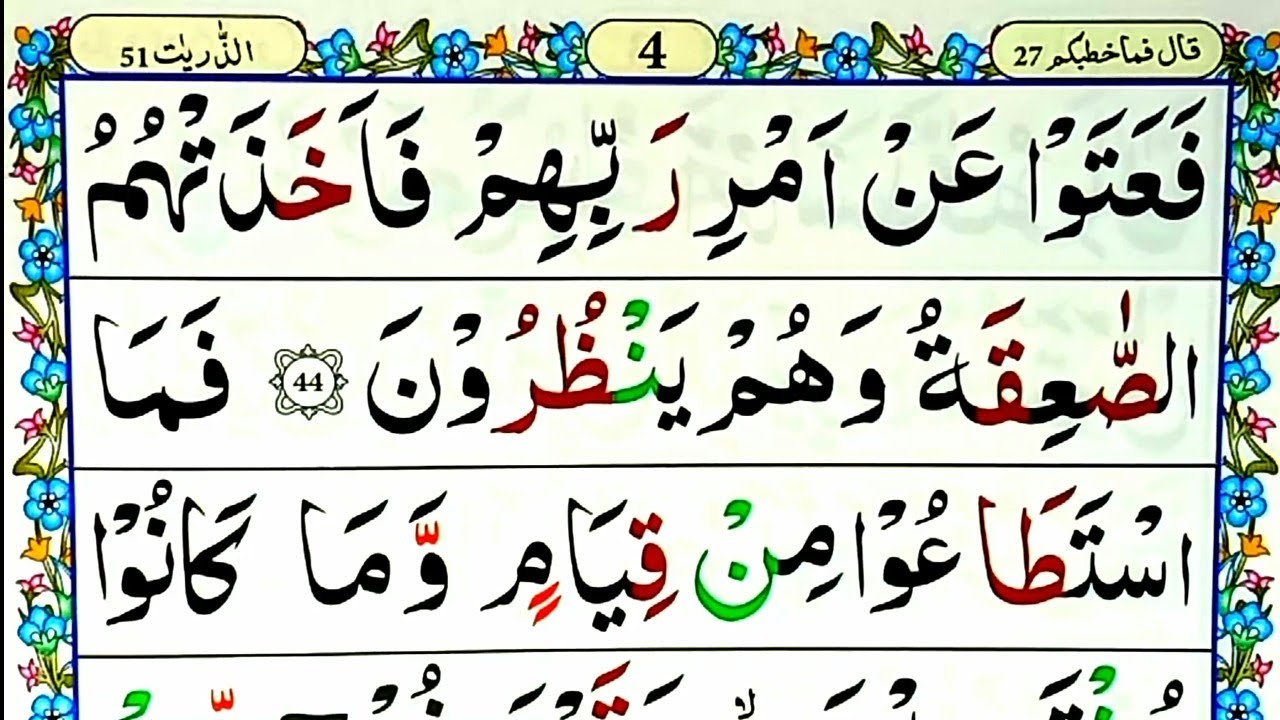 قال فما خطبكم 27 4 الذّٰریٰت 51
فَعَتَوْا عَنْ اَمْرِ رَبِّهِمْ فَاَخَذَتْهُمُ
الصّٰعِقَةُ وَهُمْ يَنْظُرُوْنَ 44 فَمَا
اسْتَطَاعُوْا مِنْ قِيَامٍ وَّمَا كَانُوْا